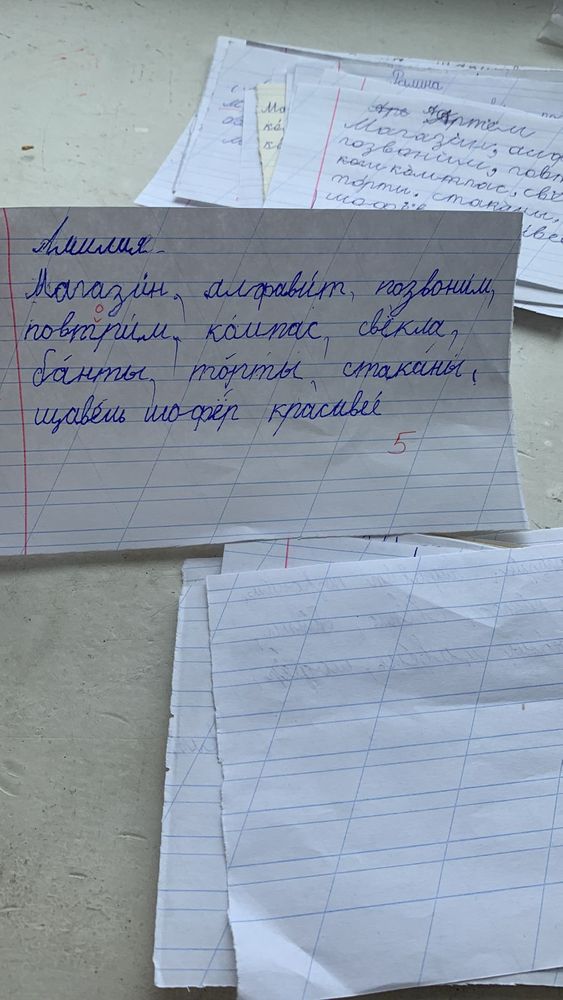 Артём
Магазин, алф
позвоним, повт
компас, свё
стаканы,
Амилия
Магази́н, алфави́т, позвони́м,
о
повтри́м, ко́мпас, свёкла,
ба́нты, то́рты, стака́ны,
щаве́ль шофёр красивее́
5